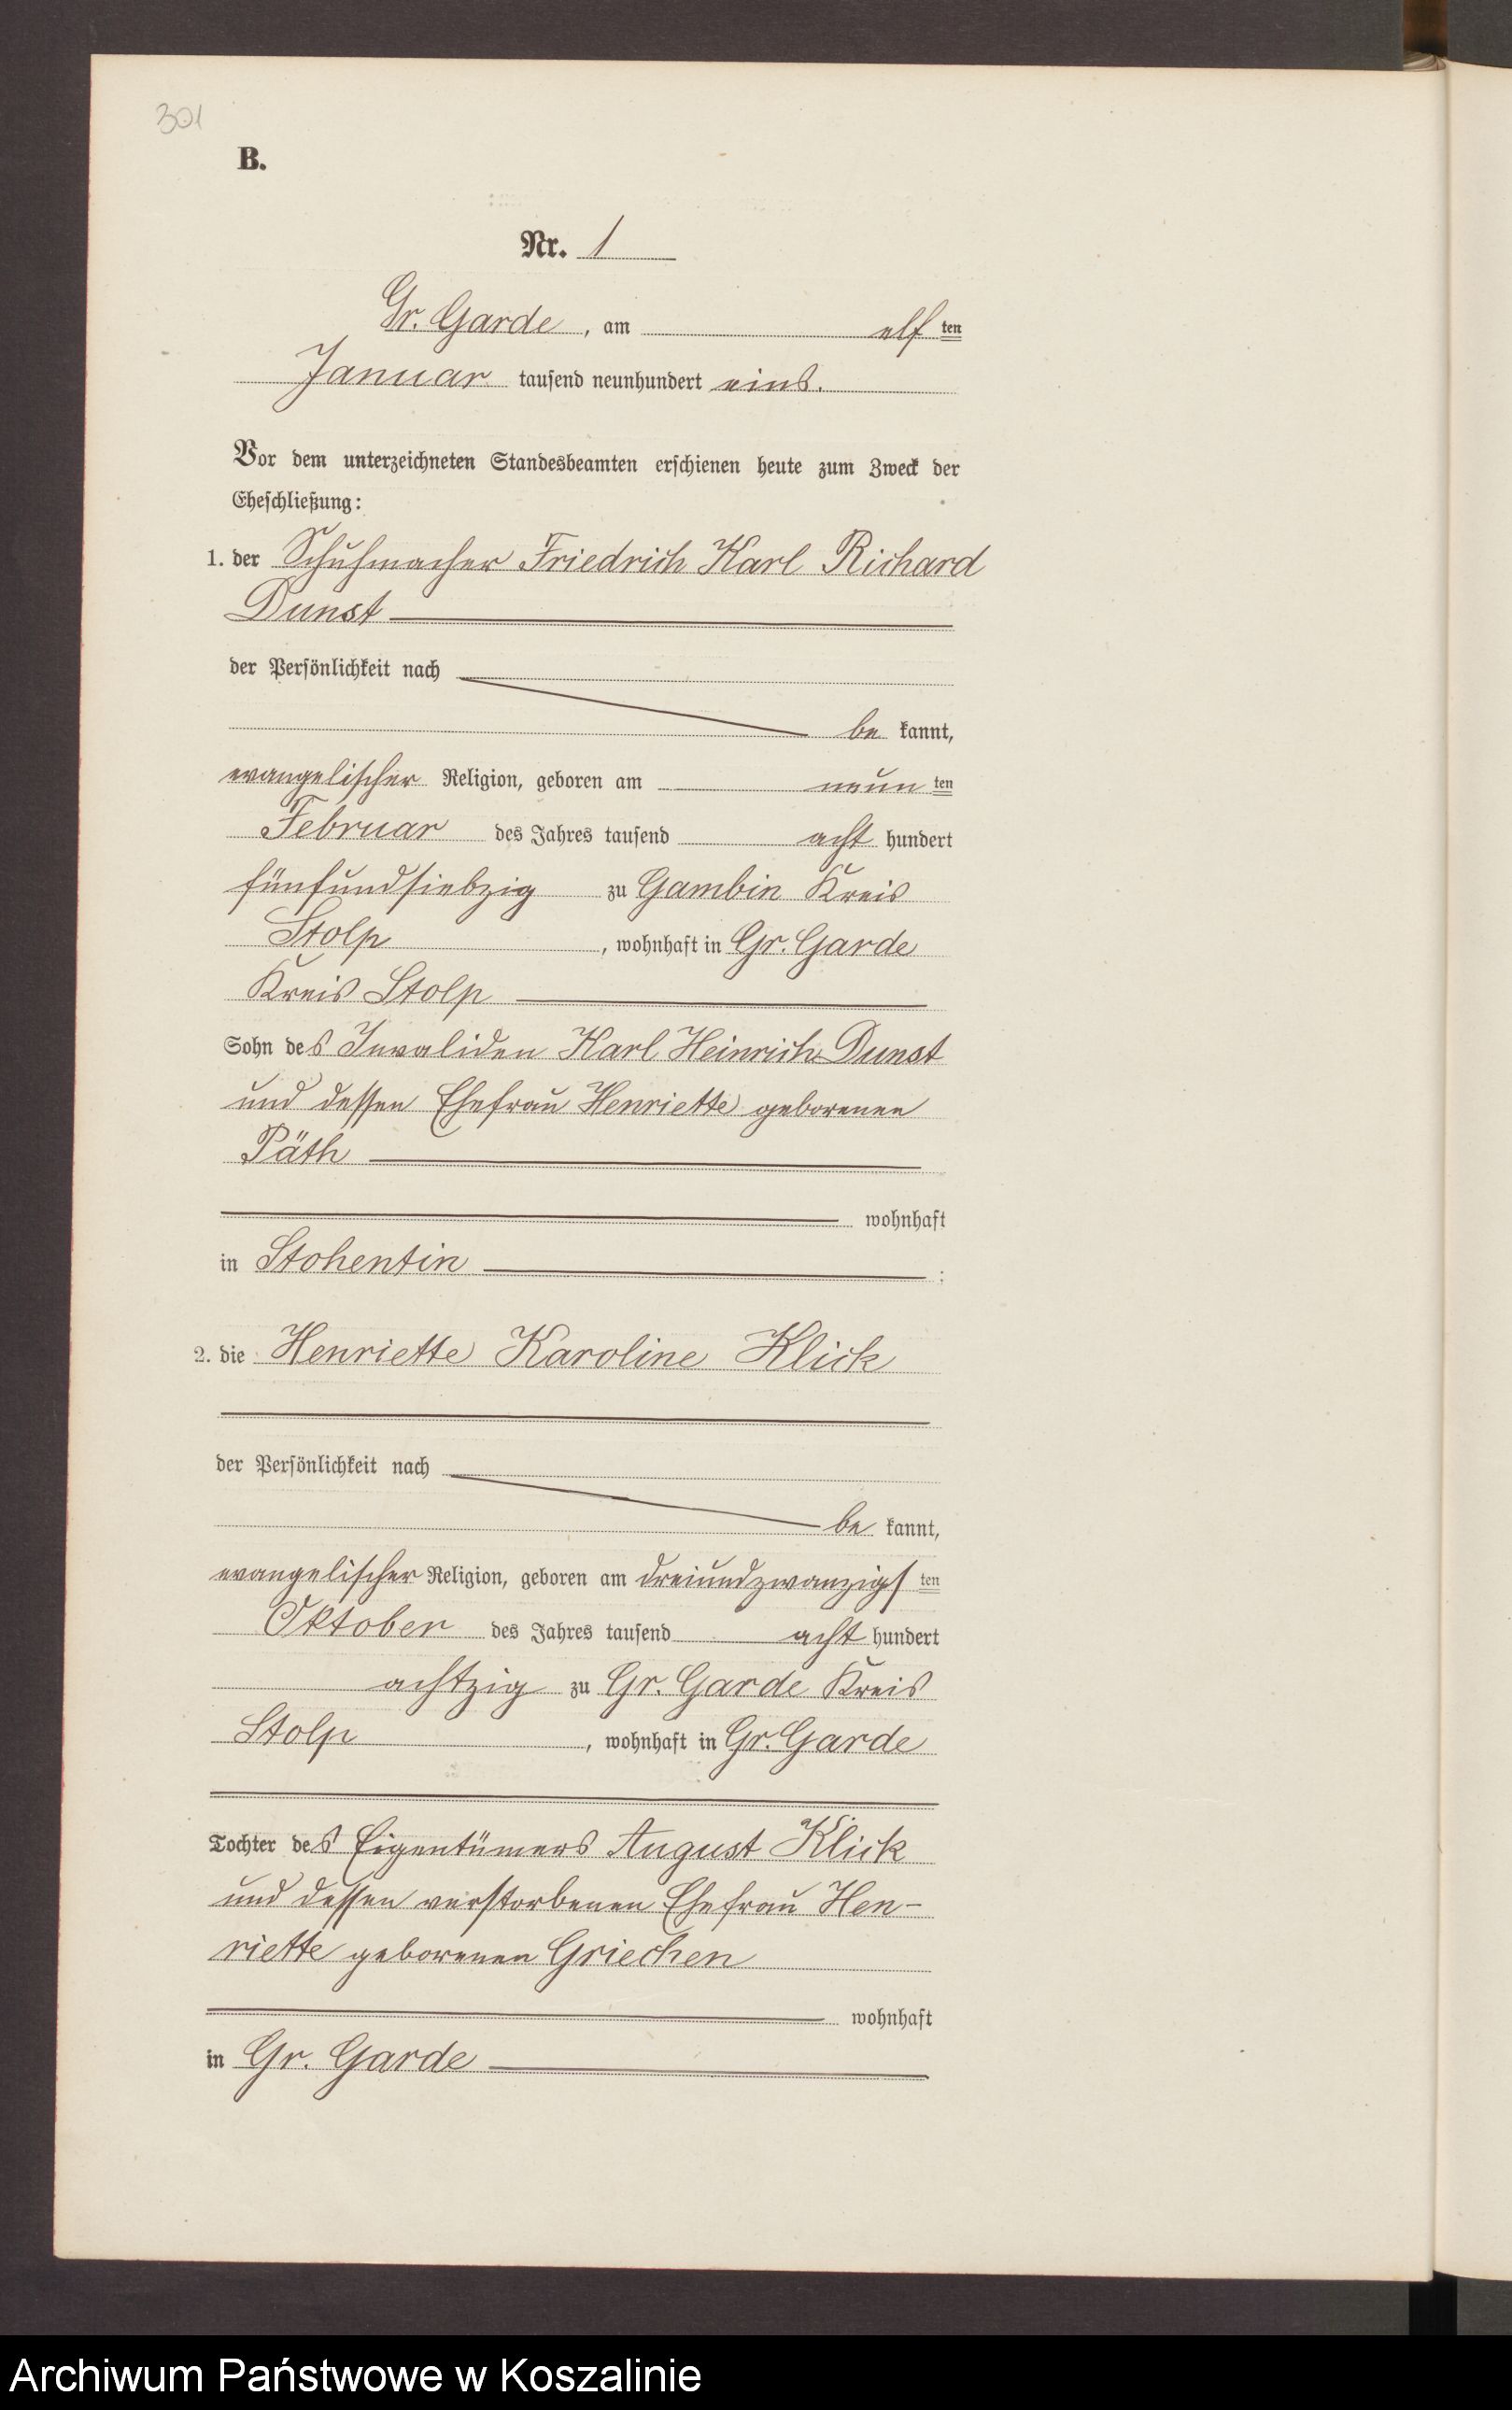 301
B.
Nr. 1
Gr. Garde, am elf ten
Januar tausend neunhundert eins.
Vor dem unterzeichneten Standesbeamten erschienen heute zum Zweck der
Eheschließung:
1. der Schuhmacher Friedrich Karl Richard
Dunst
der Persönlichkeit nach
be kannt,
evangelischer Religion, geboren am neun ten
Februar des Jahres tausend acht hundert
fünfundsiebzig zu Gambin Kreis
Stolp, wohnhaft in Gr. Garde
Kreis Stolp
Sohn des Invaliden Karl Heinrich Dunst
und dessen Ehefrau Henriette geborenen
Päth
wohnhaft
in Stohentin;
2. die Henriette Karoline Klick
der Persönlichkeit nach
be kannt,
evangelischer Religion, geboren am dreiundzwanzigs ten
Oktober des Jahres tausend acht hundert
achtzig zu Gr. Garde Kreis
Stolp, wohnhaft in Gr. Garde
Tochter des Eigentümers August Klick
und dessen verstorbenen Ehefrau Hen-
riette geborenen Griechen
wohnhaft
in Gr. Garde
Archiwum Państwowe w Koszalinie